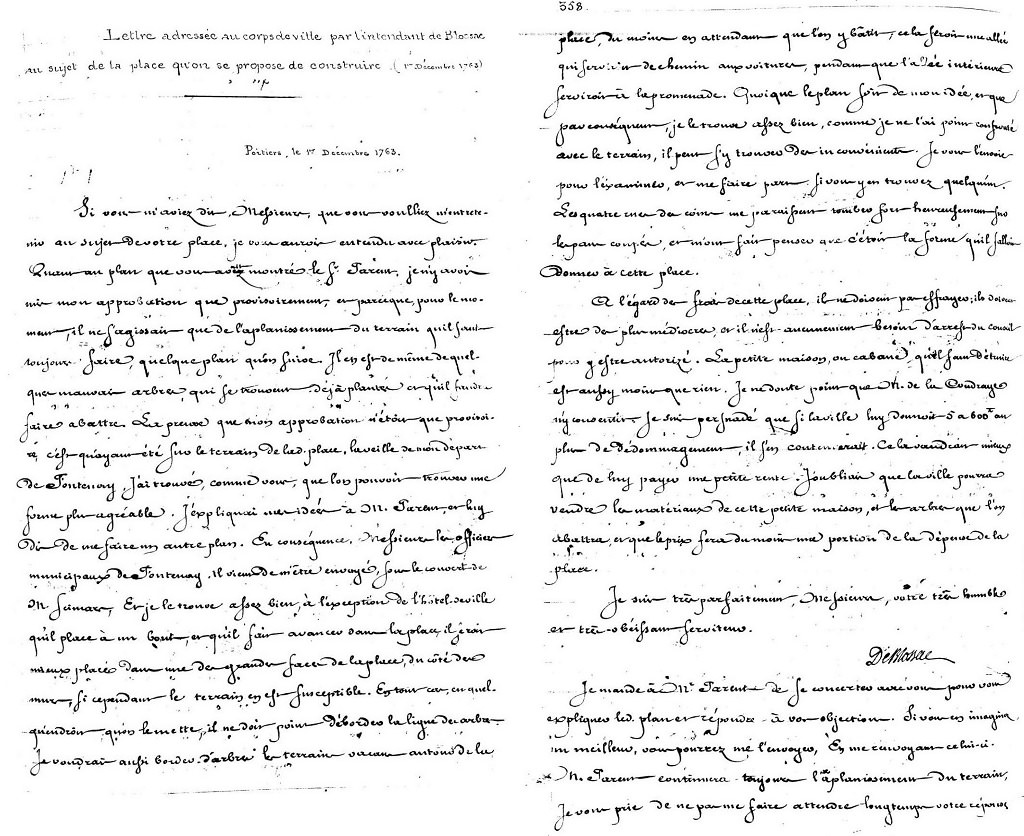 Lettre adressée au corps de ville par l'intendant de Blossac
au sujet de la place qu'on se propose de construire (1er Décembre 1763)
Poitiers, le 1er Décembre 1763.
Si vous m'aviez dit, Messieurs, que vous vouliez m'entrete-
nir au sujet de votre place, je vous aurois entendu avec plaisir.
Quant au plan que vous a montré le Sr Parent, je n'y avois
mis mon approbation que provisoirement, et parceque, pour le mo-
ment, il ne s'agissait que de l'aplanissement du terrain qu'il faut
toujours faire, quelque plan qu'on suive. Il en est de même de quel-
ques mauvais arbres qui se trouvent déjà plantés et qu'il faudra
faire abattre. La preuve que mon approbation n'étoit que provisoi-
re, c'est qu'ayant été sur le terrain de lad. place, la veille de mon départ
de Fontenay j'ai trouvé, comme vous, que l'on pouvoit trouver une
forme plus agréable. J'expliquai mes idées à M. Parent, et luy
dis de me faire un autre plan. En conséquence, Messieurs les officiers
municipaux de Fontenay, il vient de m'être envoyé, sous le couvert de
M. Et je le trouve assez bien, à l'exception de l'hôtel de ville
qu'il place à un bout, et qu'il fait avancer dans la place, il seroit
mieux placé dans une des grandes faces de la place, du côté des
murs, si cependant le terrain en est susceptible. En tout cas, en quel-
qu'endroit qu'on le mette, il ne doit point déborder la ligne des arbres.
Je voudrais aussi border d'arbres le terrain vacant autour de la
358.
place, du moins en attendant que l'on y bâtit, cela feroit une allée
qui serviroit de chemin aux voitures, pendant que l'allée intérieure
serviroit à la promenade. Quoique le plan soit de mon idée, et que
par conséquent, je le trouve assez bien, comme je ne l'ai point confronté
avec le terrain, il peut s'y trouver des inconvénients. Je vous l'envoie
pour l'examiner, et me faire part si vous y en trouvez quelqu'un.
Les quatre rues des coins me paraissent tomber fort heureusement sur
les pans coupés, et m'ont fait penser que c'étoit la forme qu'il falloit
donner à cette place.
A l'égard des frais de cette place, ils ne doivent pas effrayer; ils doivent
estre des plus médiocres et il n'est aucunement besoin d'arrest du conseil
pour y estre autorizé. La petite maison, ou cabane, qu'il faut détruire
est aussy moins que rien. Je ne doute point que M. de la Coudraye
n'y consente. Je suis persuadé que si la ville luy donnoit 5 a 600# au
plus de dédommagement, il s'en contenterait. Cela vaudrait mieux
que de luy payer une petite rente. J'oubliais que la ville pourra
vendre les matériaux de cette petite maison, et les arbres que l'on
abattra, et que le prix fera du moins une portion de la dépense de la
place.
Je suis très parfaitement, Messieurs, votre très humble
et très-obéissant serviteur.
De Blossac
Je mande à Mr Parent de se concerter avec vous pour vous
expliquer led. plan et répondre à vos objections. Si vous en imaginez
un meilleur, vous pourrez me l'envoyer, En me renvoyant celui-ci.
M. Parent continuera toujours l'aplanissement du terrain,
Je vous prie de ne pas me faire attendre longtemps votre réponse